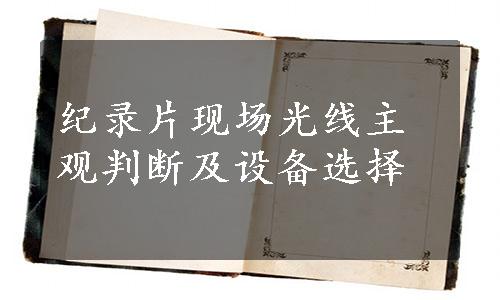 纪录片现场光线主
观判断及设备选择